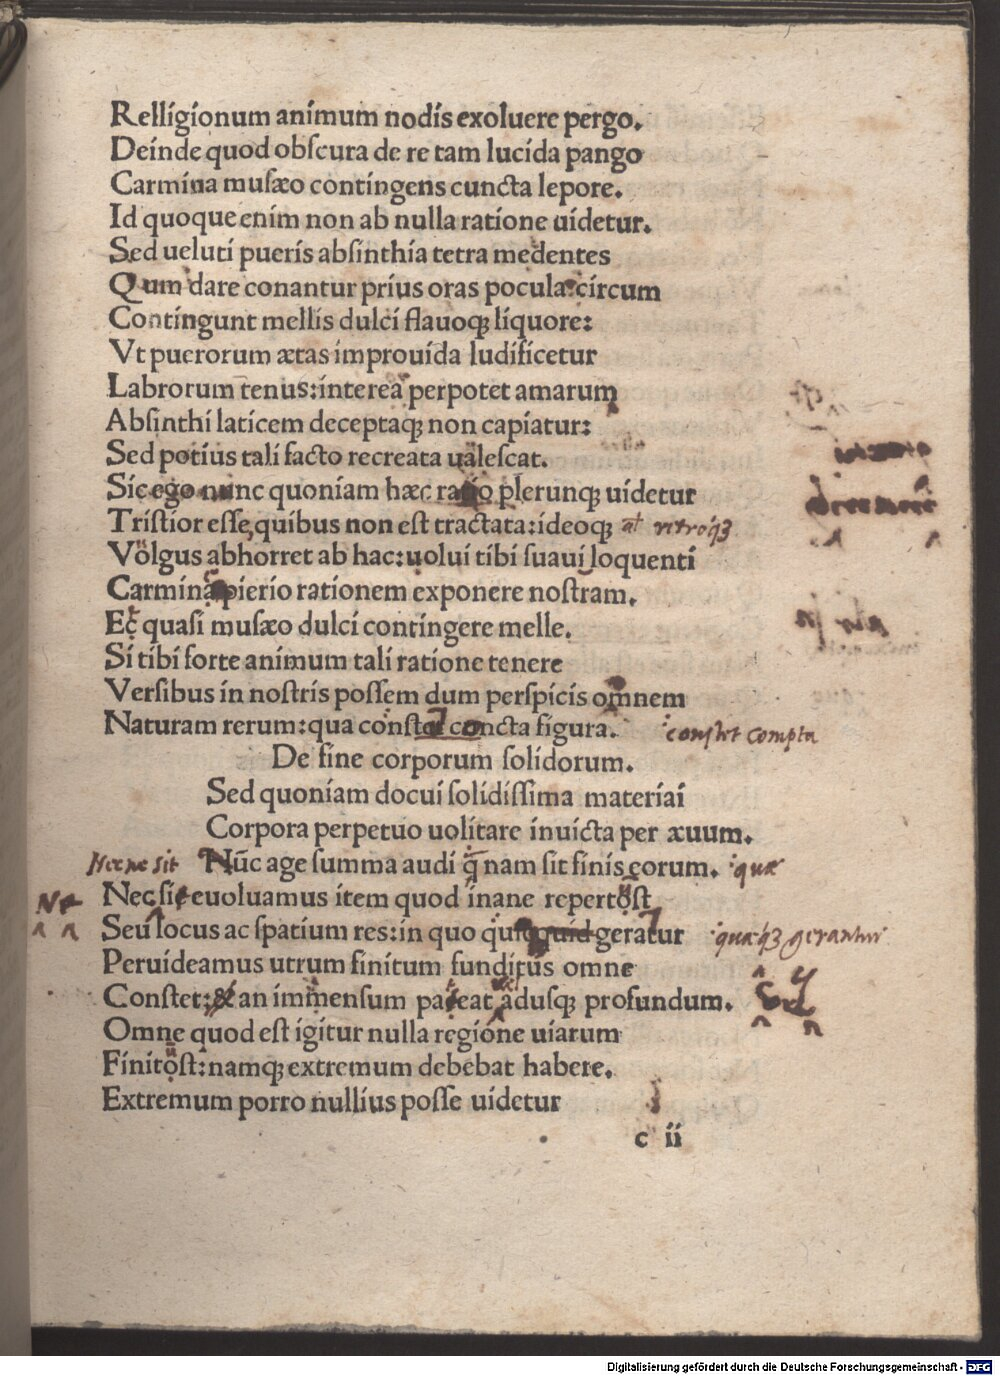 Relligionum animum nodis exoluere pergo.
Deinde quod obscura de re tam lucida pango
Carmina musæo contingens cuncta lepore.
Id quoque enim non ab nulla ratione uidetur.
Sed ueluti pueris absinthia tetra medentes
Qum dare conantur prius oras pocula circum
Contingunt mellis dulci flauoqꝫ liquore:
Vt puerorum ætas improuida ludificetur
Labrorum tenus: interea perpotet amarum
Absinthi laticem deceptaqꝫ non capiatur:
Sed potius tali facto recreata ualescat.
Sic ego nunc quoniam hæc ratio plerunqꝫ uidetur
Tristior esse, quibus non est tractata: ideoqꝫ al' retroqꝫ
Volgus abhorret ab hac: uolui tibi suaui loquenti
Carmina pierio rationem exponere nostram.
Et quasi musæo dulci contingere melle.
Si tibi forte animum tali ratione tenere
Versibus in nostris possem dum perspicis omnem
Naturam rerum: qua constet concta figura. constet compta
De fine corporum solidorum.
Sed quoniam docui solidissima materiai
Corpora perpetuo uolitare inuicta per æuum.
Nec ne sit Nūc age summa audi q̄ nam sit finis eorum. quæ
Ne Nec sit euoluamus item quod inane repertost
Seu locus ac spatium res: in quo quicquid geratur quæqꝫ gerantur
Peruideamus utrum finitum funditus omne
Constet: & an immensum pateat adusqꝫ profundum.
Omne quod est igitur nulla regione uiarum
Finitost: namqꝫ extremum debebat habere.
Extremum porro nullius posse uidetur
c ii
Digitalisierung gefördert durch die Deutsche Forschungsgemeinschaft - DFG